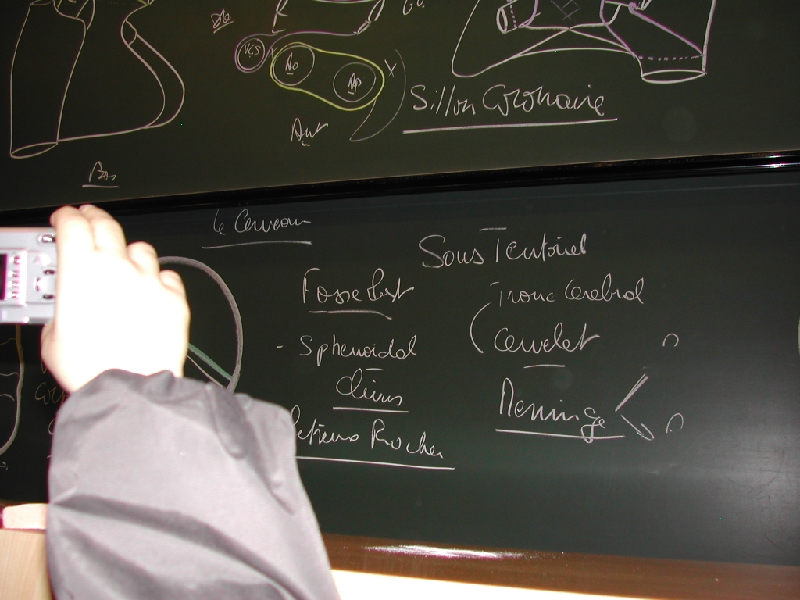 VCS
Ao
AP
Ant
Sillon Coronaire
Bas
le Cerveau
Sous Tentoriel
Fosse Post
Tronc Cerebral
- Sphenoidal
Cervelet
Clivus
Meninge
Petreux Rocher